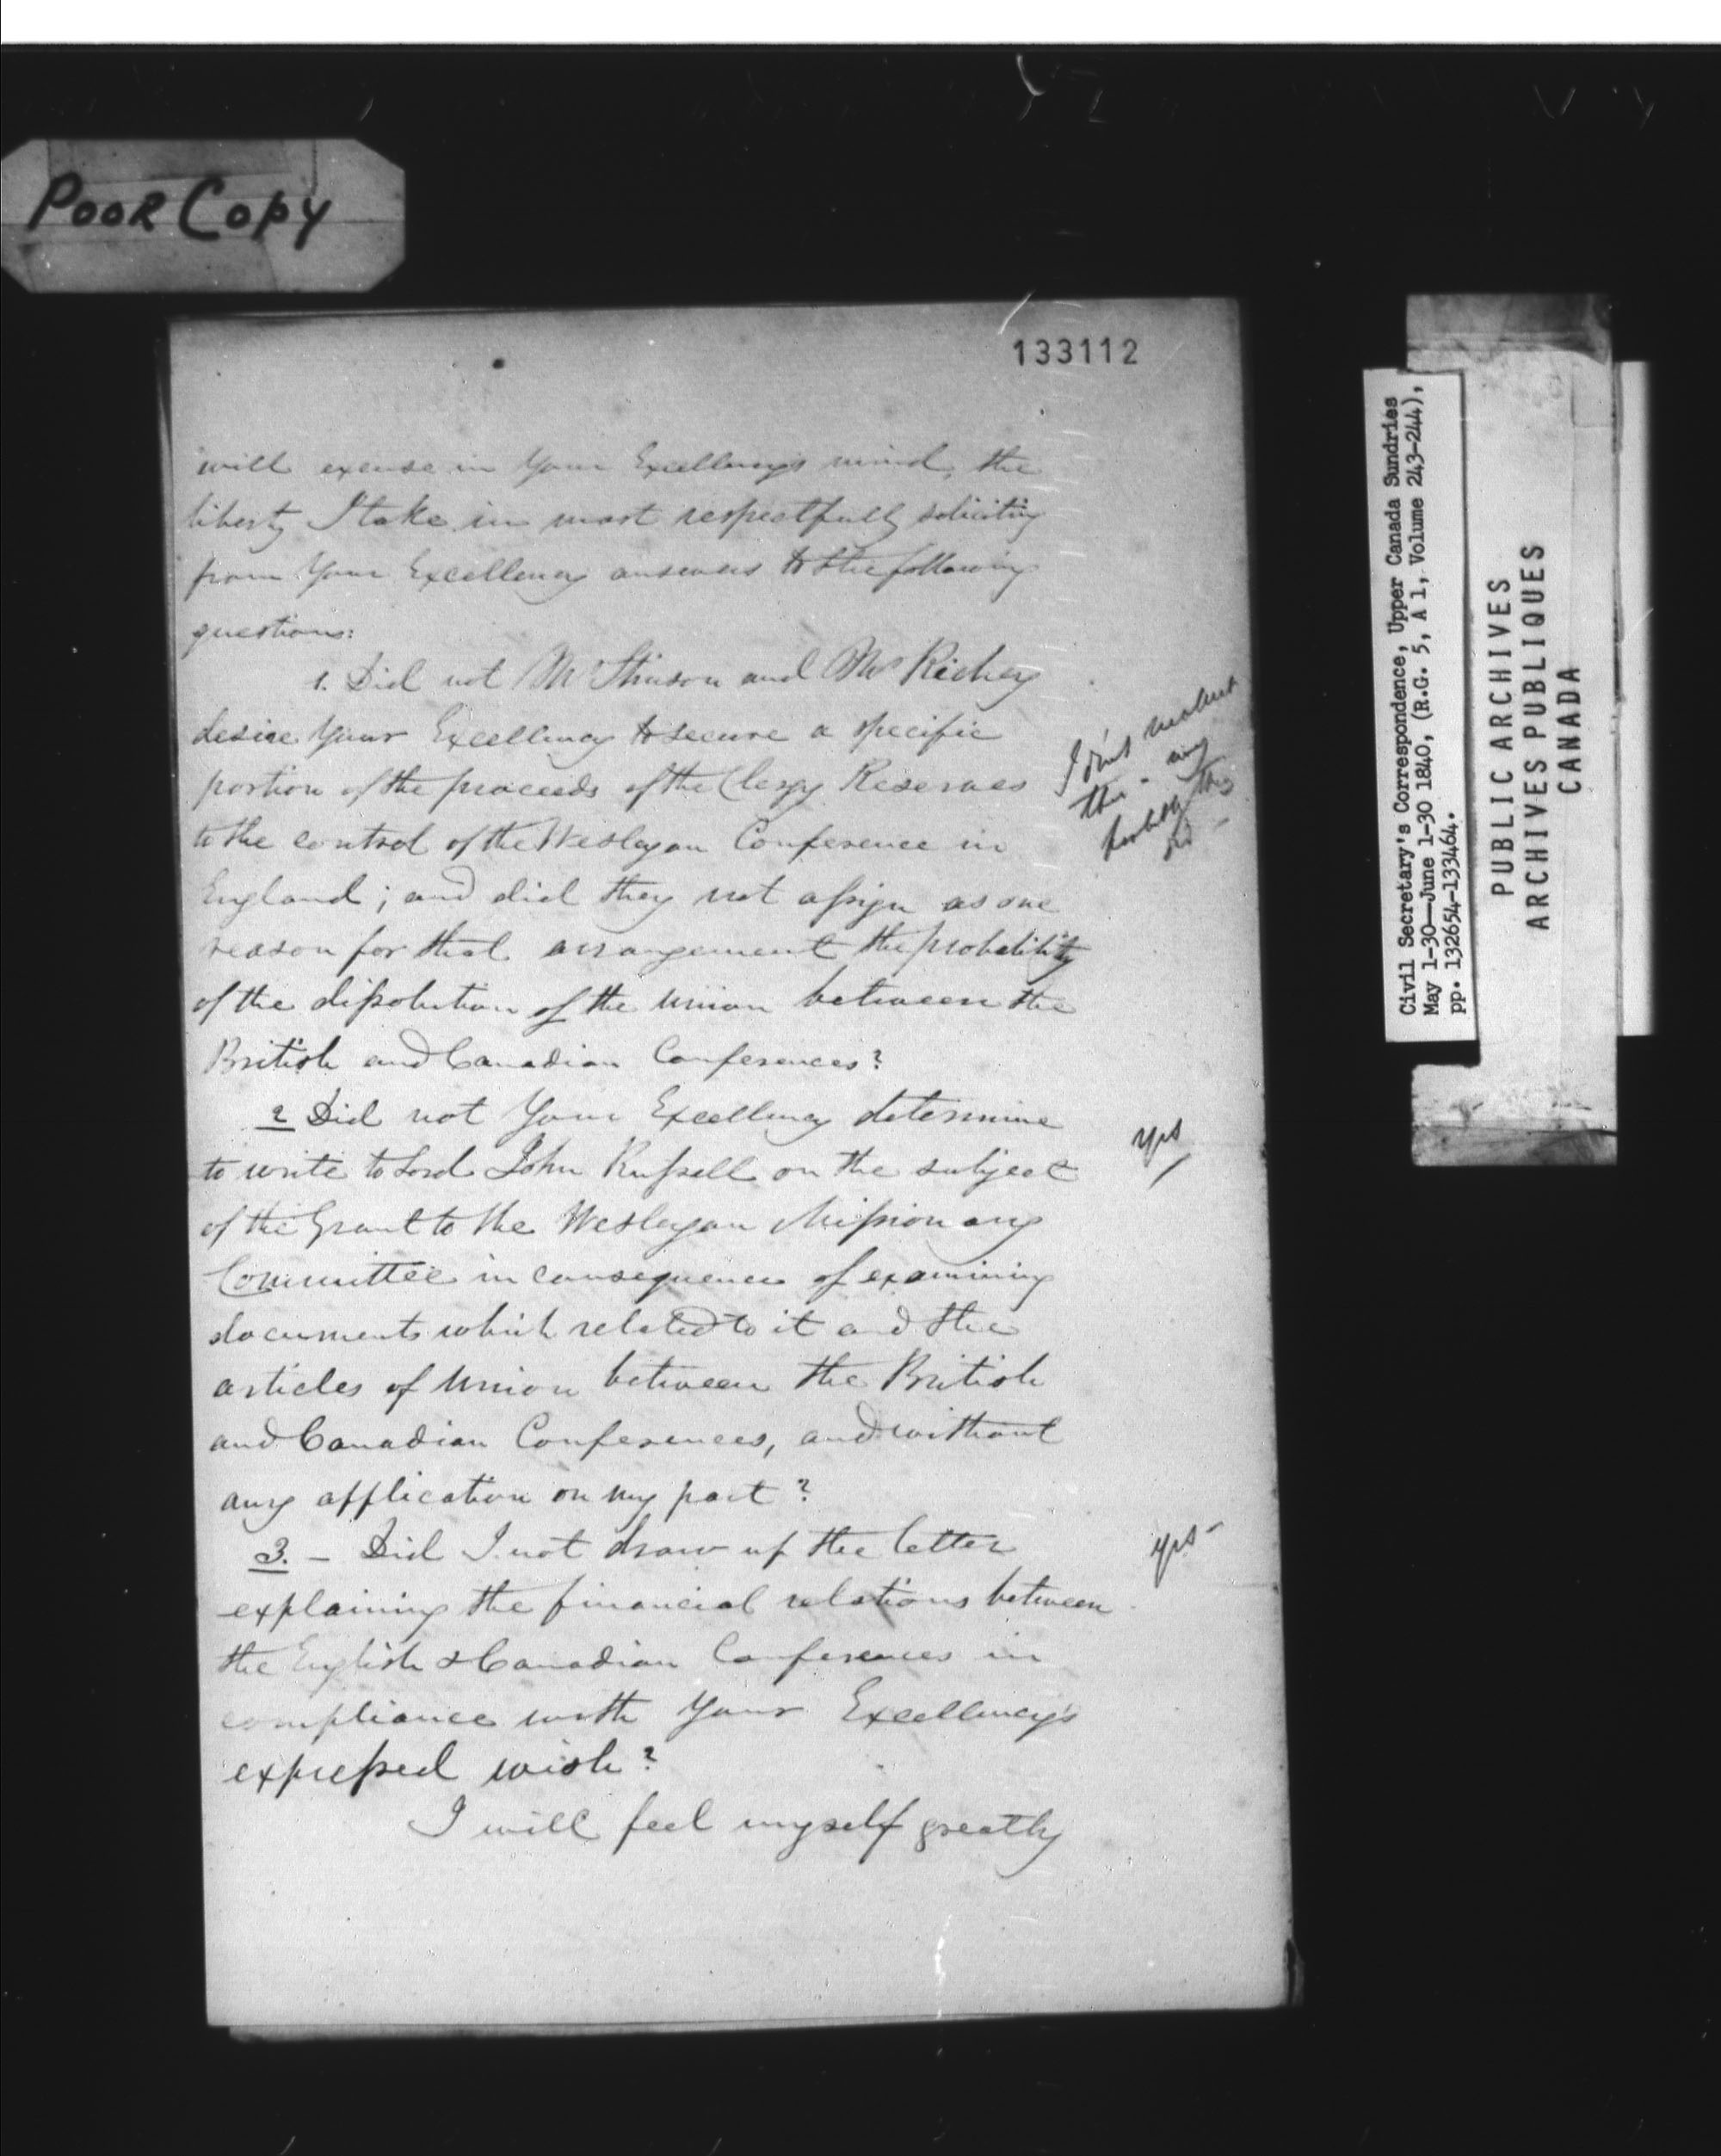 POOR COPY
133112
will excuse in Your Excellency's mind, the
liberty I take in most respectfully soliciting
from Your Excellency answers to the following
questions:
1. Did not Mr Stinson and Mr Richey
desire Your Excellency to secure a specific
portion of the proceeds of the Clergy Reserves
to the control of the Wesleyan Conference in
England; and did they not assign as one
reason for that arrangement the probability
of the dissolution of the Union between the
British and Canadian Conferences?
I don't
the - any
probably they
did -
2 Did not Your Excellency determine
to write to Lord John Russell on the subject
of the Grant to the Wesleyan Missionary
Committee in consequence of examining
documents which related to it and the
articles of Union between the British
and Canadian Conferences, and without
any application on my part?
yes
3. - Did I not draw up the letter
explaining the financial relations between
the English & Canadian Conferences in
compliance with Your Excellency's
expressed wish?
yes -
I will feel myself greatly
Civil Secretary's Correspondence, Upper Canada Sundries
May 1-30—June 1-30 1840, (R.G. 5, A 1, Volume 243-244),
pp. 132654-133464.
PUBLIC ARCHIVES
ARCHIVES PUBLIQUES
CANADA